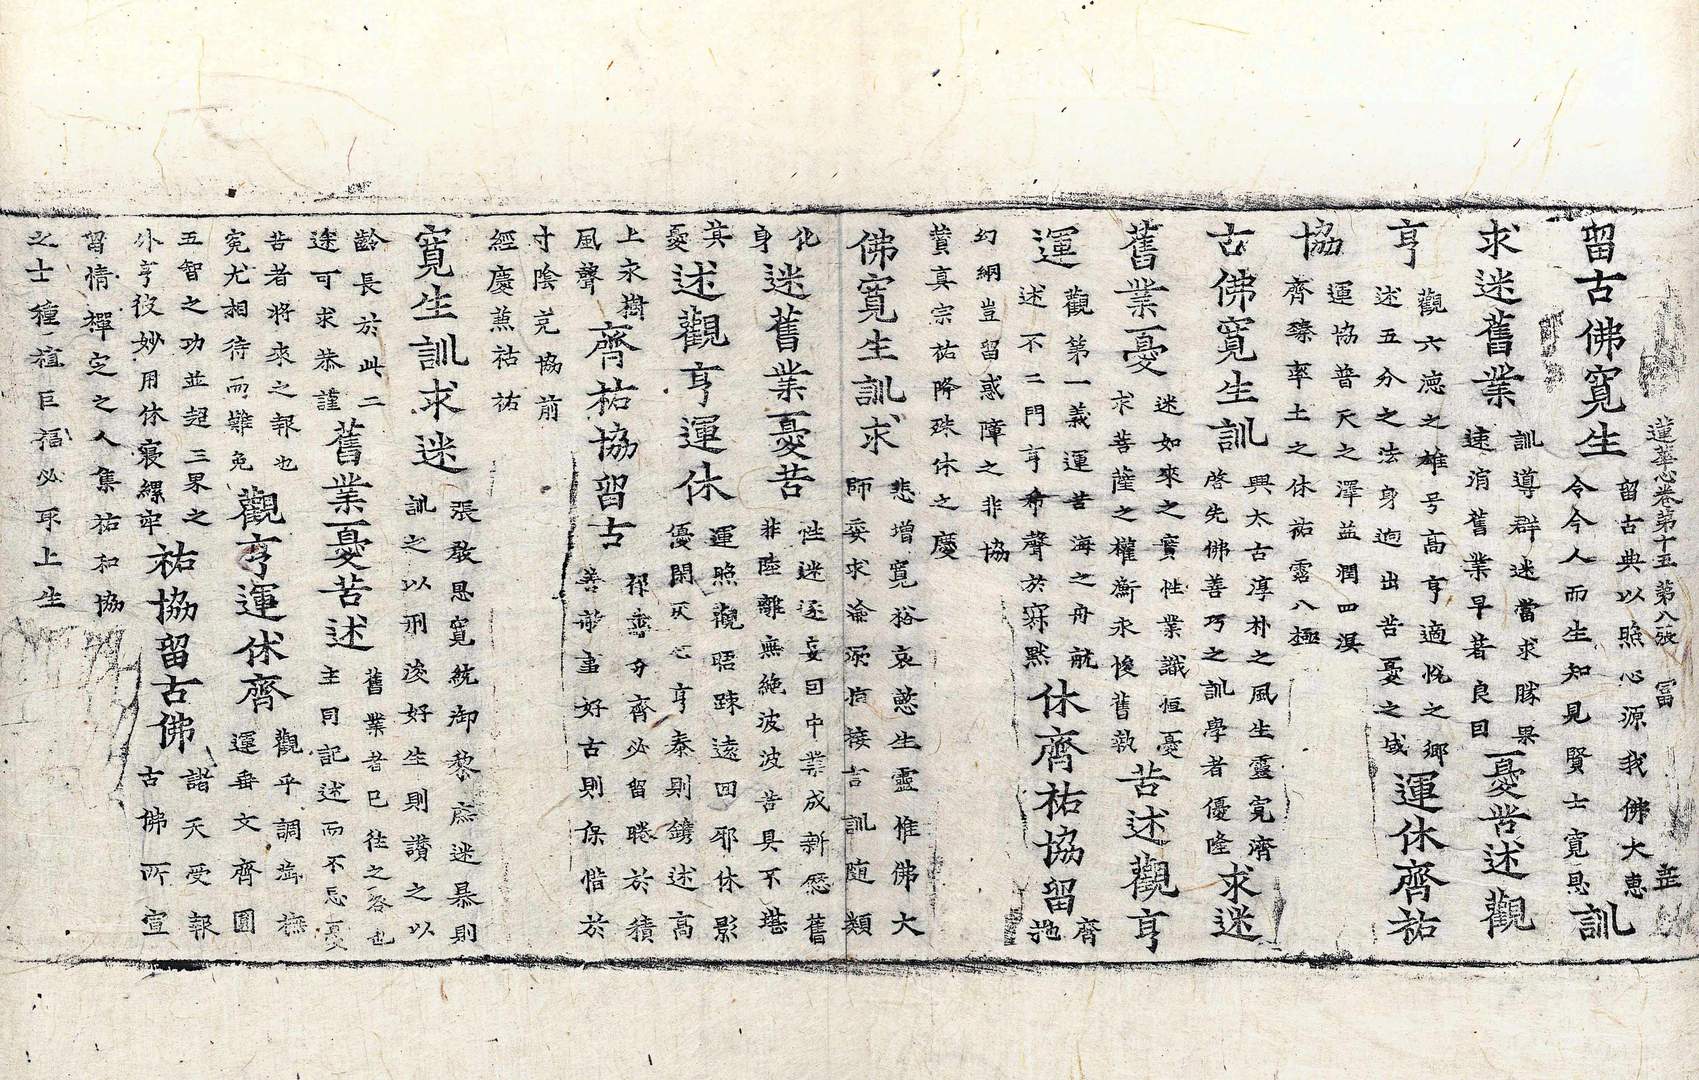 蓮華心卷第十五 第八張 富
留古佛寬生 留古典以照心源我佛大惠
令令人而生知見賢士寬恩 訓
求迷舊業 訓導群迷當求勝果
速消舊業早著良因 憂苦述觀
亨 觀六德之雄号高亨適悅之鄉
述五分之法身逈出苦憂之域 運休齊祐
協 運協普天之澤益潤四溟
齊臻率土之休祐霑八極
古佛寬生訓 興太古淳朴之風生靈寬濟
啓先佛善巧之訓學者優隆 求迷
舊業憂 迷如來之實性業識恒憂
求菩薩之權衡永悛舊執 苦述觀亨
運 觀第一義運苦海之舟航
述不二門亨希聲於寂默 休齊祐協留 齊
幻網豈留惑障之非協
贊真宗祐降殊休之慶
佛寬生訓求 悲增寬裕哀愍生靈惟佛大
師委求淪溺俯接言訓随類
化
身 迷舊業憂苦 性迷逐妄因中業成新舊
非陸離無絶波波苦具不堪
其
憂 述觀亨運休 運照觀晤踈遠回邪休影
優閑灰心亨泰則鐫述高
上永樹
風聲 齊祐協留古 尋分齊必留睠於積
善事好古則保惜於
寸陰克協前
經慶祐祐
寬生訓求迷 張敎恩寬統御黎庶迷暴則
訓之以刑好生則讚之以
齡長於此二
途可求恭謹 舊業憂苦述 舊業者已往之咎也
主司記述而不忘憂
苦者將來之報也
宛尤相待而難免 觀亨運休齊 觀乎調御撫
運垂文齊圓
五智之功並超三界之
外亨彼妙用休寢縲牢 祐協留古佛 諸天受報
古佛所宣
留情禪定之人集祐和協
之士種植巨福必取上生